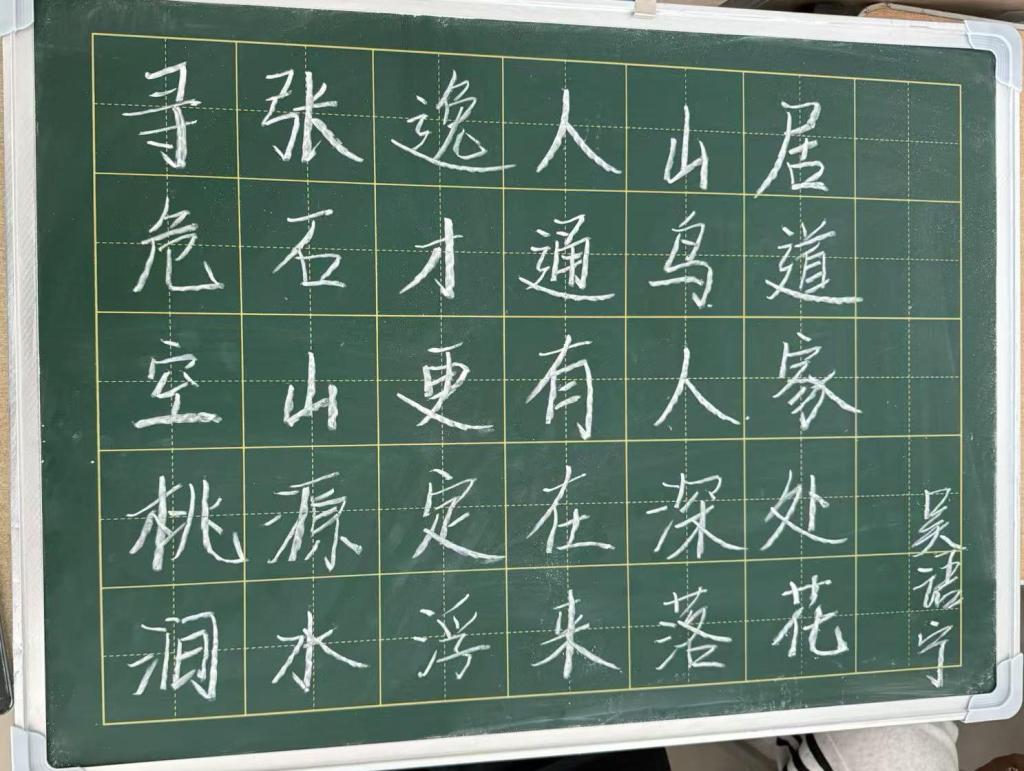 寻张逸人山居
危石才通鸟道
空山更有人家
桃源定在深处
涧水浮来落花
吴语宁